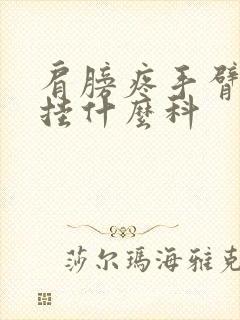 肩膀疼手臂
挂什麼科
莎尔瑪海雅克